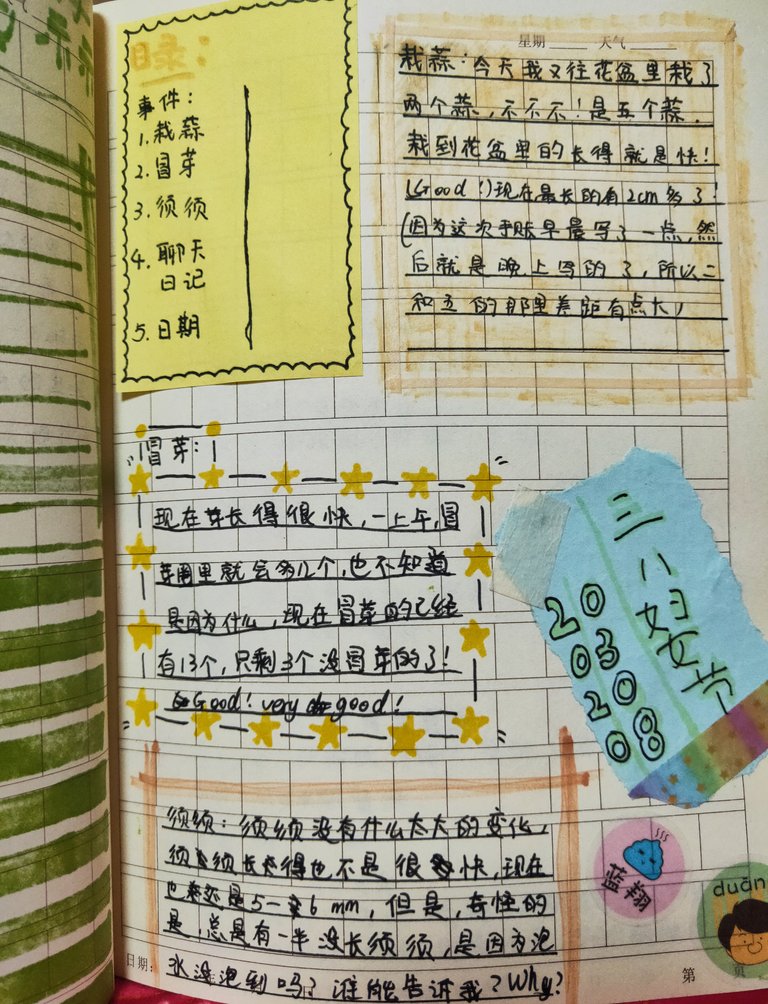 目录:
事件:
1.栽蒜
2.冒芽
3.须须
4.聊天
日记
5.日期
星期 天气
栽蒜:今天我又往花盆里栽了
两个蒜,不不不!是五个蒜.
栽到花盆里的长得就是快!
(Good!)现在最长的有2cm多了!
(因为这次手账早晨写了一点,然
后就是晚上写的了,所以二
和五的那里差距有点大)
"冒芽:
现在芽长得很快,一上午,冒
芽周里就会多几个,也不知道
是因为什么,现在冒芽的已经
有13个,只剩3个没冒芽的了!
Good! very good!
三八妇女节
20
03
20
08
须须:须须没有什么太大的变化,
须须长得也不是很快,现在
也还是5—6 mm,但是,奇怪的
是,总是有一半没长须须,是因为泡
水没泡到吗?谁能告诉我?Why?
蓝翔
duǎn
日期:
第 页